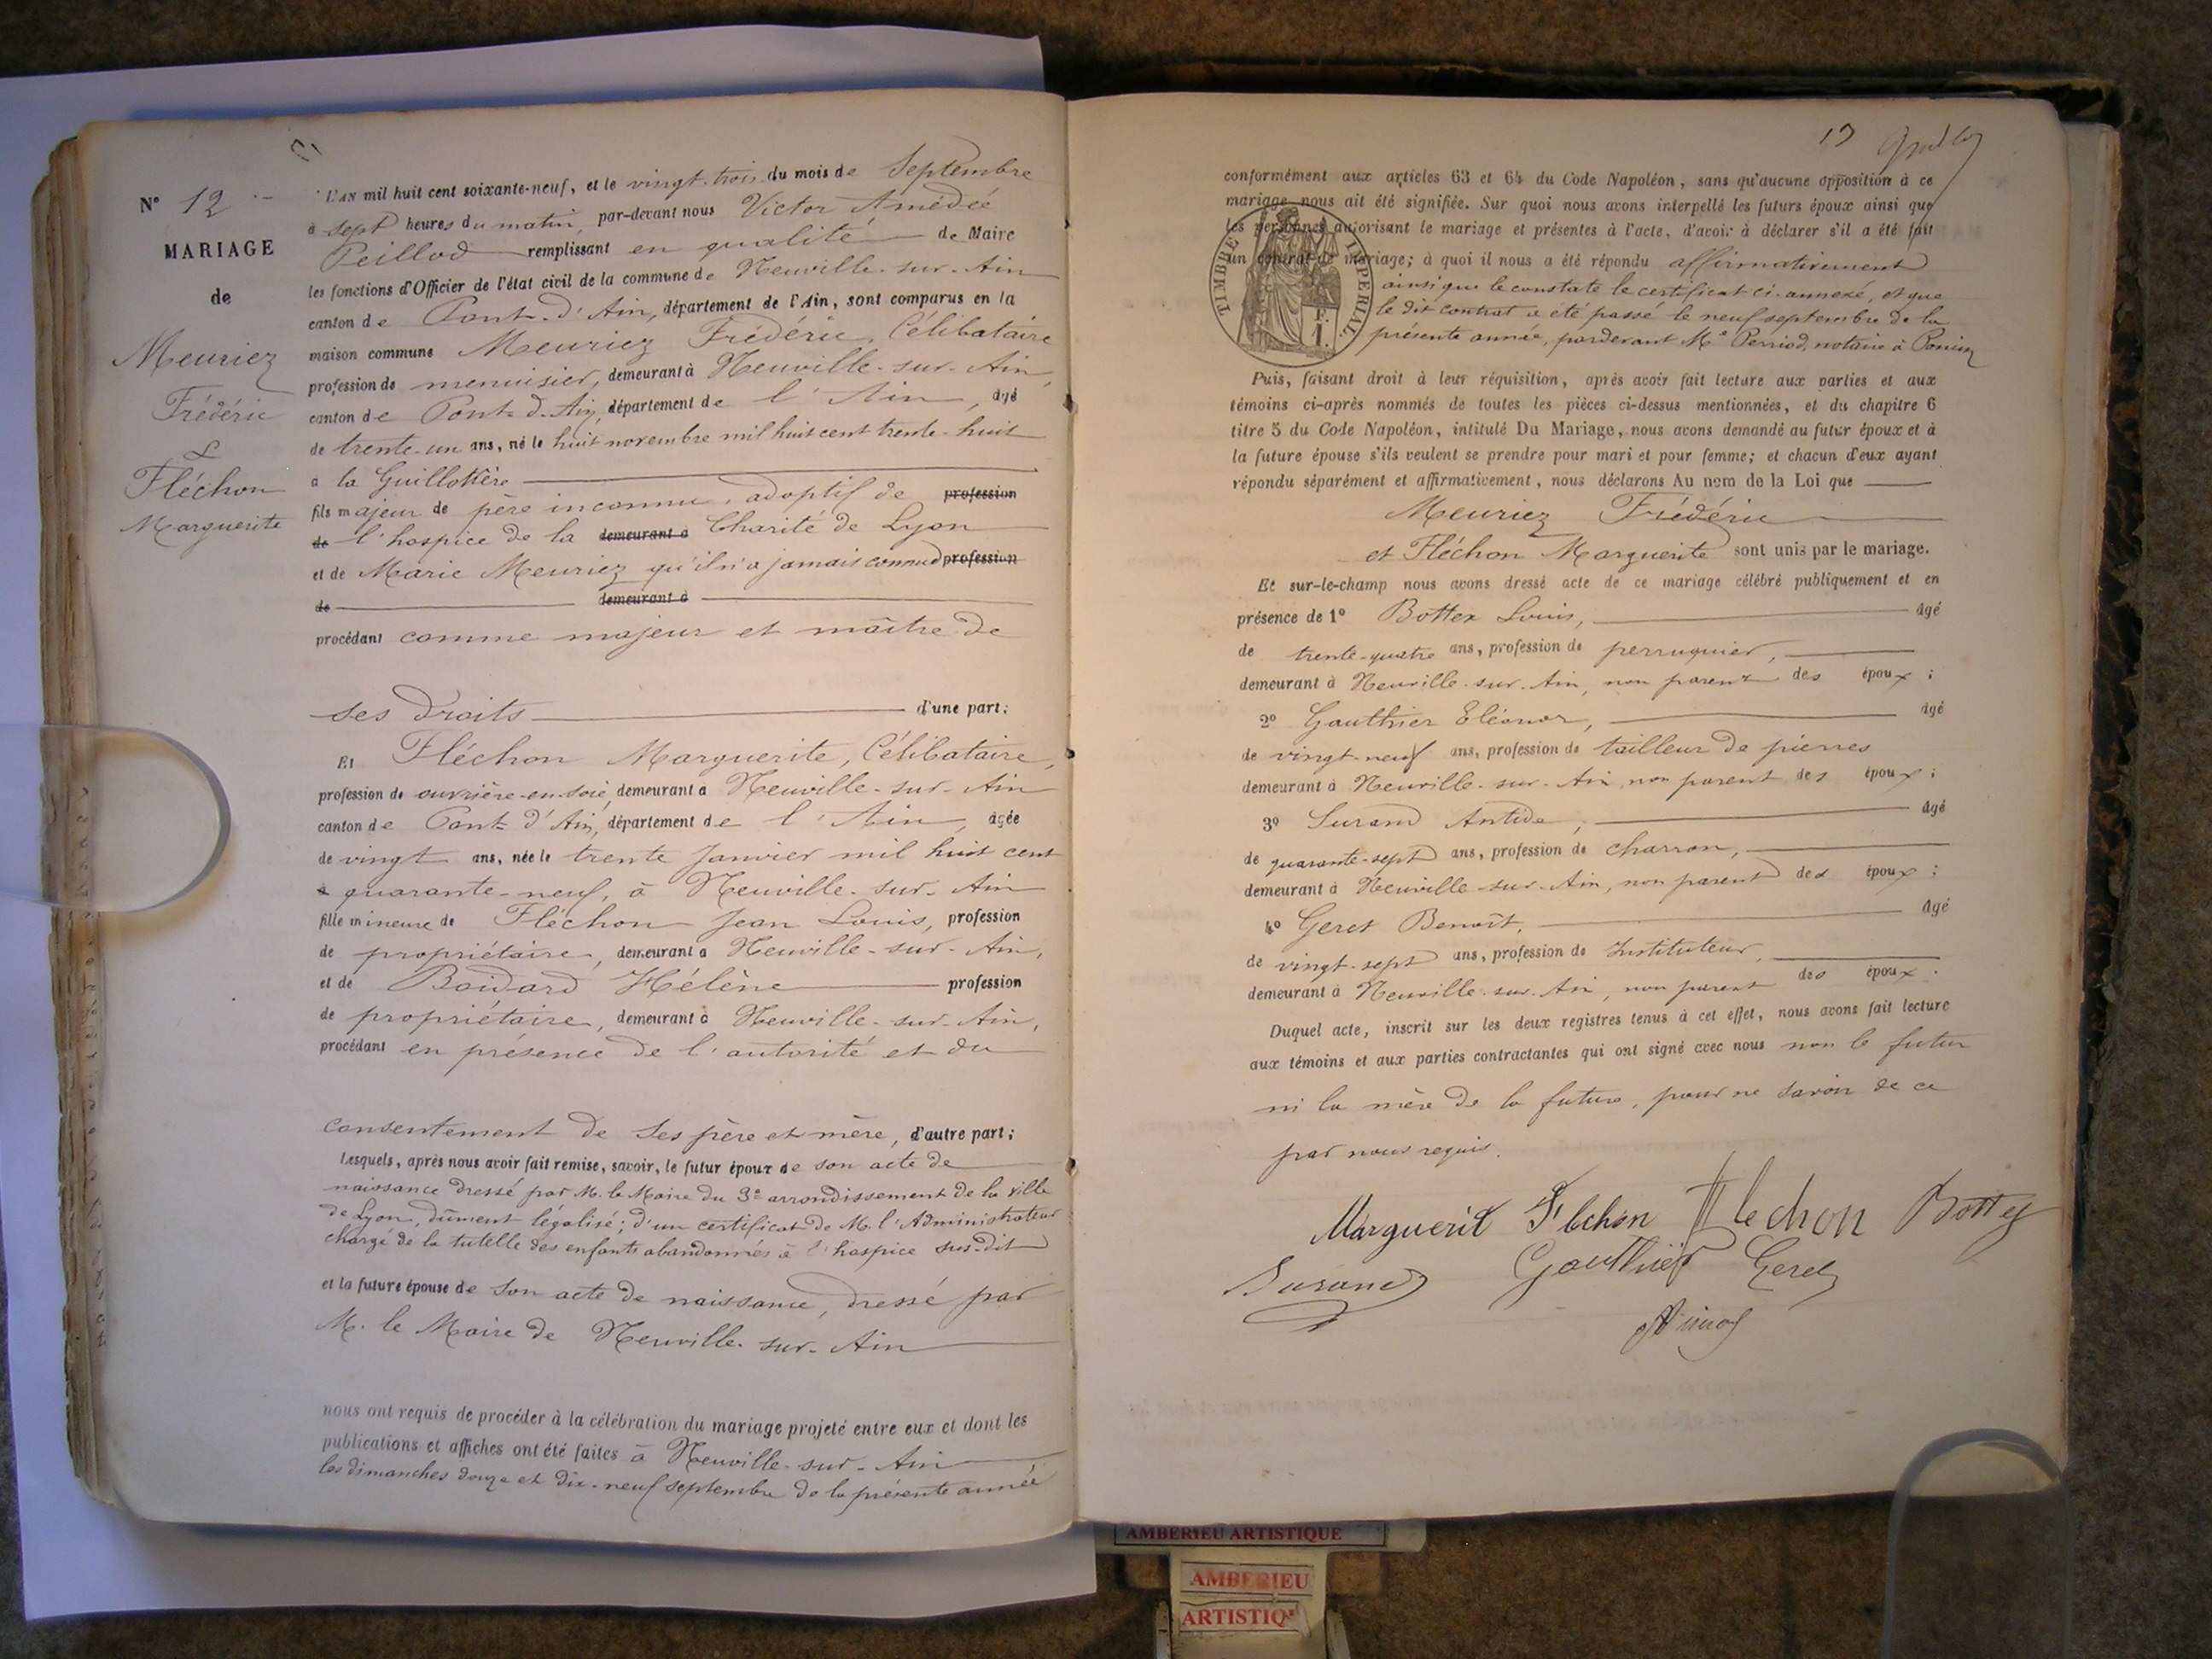 N° 12
MARIAGE
de
Meuriez
Frédéric
&
Fléchon
Marguerite
L'AN mil huit cent soixante-neuf, et le vingt-trois du mois de Septembre
à sept heures du matin, par-devant nous Victor Amédée
Peillod remplissant en qualité de Maire
les fonctions d'Officier de l'état civil de la commune de Neuville-sur-Ain
canton de Pont-d'Ain, département de l'Ain, sont comparus en la
maison commune Meuriez Frédéric, Célibataire
profession de menuisier, demeurant à Neuville-sur-Ain,
canton de Pont-d'Ain, département de l'Ain, âgé
de trente-un ans, né le huit novembre mil huit cent trente-huit
à la Guillotière
fils majeur de père inconnu, adoptif de profession
de l'hospice de la demeurant à Charité de Lyon
et de Marie Meuriez qu'il n'a jamais connue profession
de demeurant à
procédant comme majeur et maître de
ses droits d'une part;
Et Fléchon Marguerite, Célibataire,
profession de ouvrière-en-soie, demeurant à Neuville-sur-Ain
canton de Pont-d'Ain, département de l'Ain, âgée
de vingt ans, née le trente Janvier mil huit cent
à quarante-neuf, à Neuville-sur-Ain
fille mineure de Fléchon Jean Louis, profession
de propriétaire, demeurant à Neuville-sur-Ain,
et de Boidard Hélène profession
de propriétaire, demeurant à Neuville-sur-Ain,
procédant en présence de l'autorité et du
consentement de ses père et mère, d'autre part;
Lesquels, après nous avoir fait remise, savoir, le futur époux de son acte de
naissance dressé par M. le Maire du 3e arrondissement de la ville
de Lyon, dûment légalisé; d'un certificat de M. l'Administrateur
chargé de la tutelle des enfants abandonnés à l'hospice sus-dit
et la future épouse de son acte de naissance, dressé par
M. le Maire de Neuville-sur-Ain
nous ont requis de procéder à la célébration du mariage projeté entre eux et dont les
publications et affiches ont été faites à Neuville-sur-Ain
les dimanches douze et dix-neuf septembre de la présente année
conformément aux articles 63 et 64 du Code Napoléon, sans qu'aucune opposition à ce
mariage nous ait été signifiée. Sur quoi nous avons interpellé les futurs époux ainsi que
les personnes autorisant le mariage et présentes à l'acte, d'avoir à déclarer s'il a été fait
un contrat de mariage; à quoi il nous a été répondu affirmativement
ainsi que le constate le certificat ci-annexé, et que
le dit contrat a été passé le neuf septembre de la
présente année, pardevant Me Perriod, notaire à Poncin
TIMBRE IMPERIAL
Puis, faisant droit à leur réquisition, après avoir fait lecture aux parties et aux
témoins ci-après nommés de toutes les pièces ci-dessus mentionnées, et du chapitre 6
titre 5 du Code Napoléon, intitulé Du Mariage, nous avons demandé au futur époux et à
la future épouse s'ils veulent se prendre pour mari et pour femme; et chacun d'eux ayant
répondu séparément et affirmativement, nous déclarons Au nom de la Loi que
Meuriez Frédéric
et Fléchon Marguerite sont unis par le mariage.
Et sur-le-champ nous avons dressé acte de ce mariage célébré publiquement et en
présence de 1° Bottex Louis, âgé
de trente-quatre ans, profession de perruquier,
demeurant à Neuville-sur-Ain, non parent des époux;
2° Gauthier Eléonor, âgé
de vingt-neuf ans, profession de tailleur de pierres
demeurant à Neuville-sur-Ain, non parent des époux;
3° Surand Antide, âgé
de quarante-sept ans, profession de charron,
demeurant à Neuville-sur-Ain, non parent des époux;
4° Geret Benoît, âgé
de vingt-sept ans, profession de Instituteur,
demeurant à Neuville-sur-Ain, non parent des époux.
Duquel acte, inscrit sur les deux registres tenus à cet effet, nous avons fait lecture
aux témoins et aux parties contractantes qui ont signé avec nous non le futur
ni la mère de la future, pour ne savoir de ce
par nous requis.
Marguerit Flechon Flechon Bottex
Surand Gauthier Geret
AMBERIEU ARTISTIQUE
AMBERIEU
ARTISTIQ